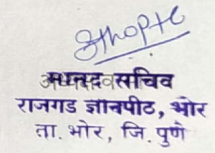 मानद सचिव
राजगड ज्ञानपीठ, भोर
ता. भोर, जि. पुणे